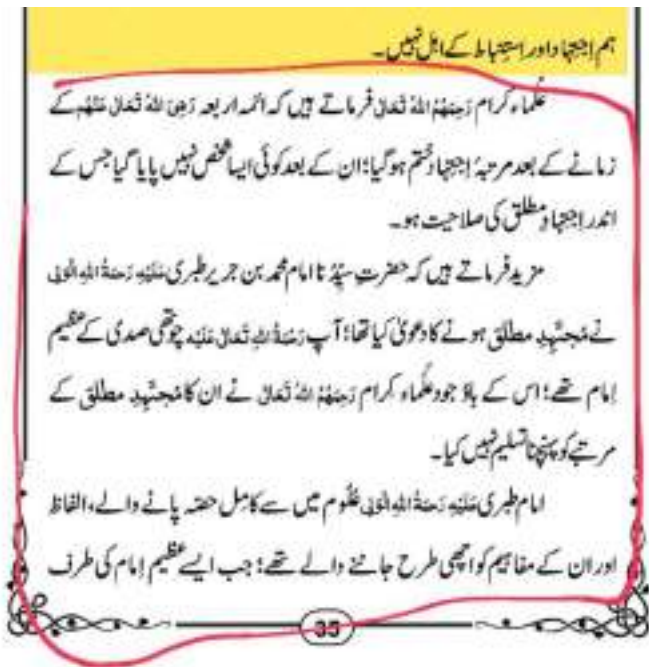 ہم اِجتہاد اور استنباط کے اہل نہیں۔
علماء کرام رَحِمَهُمُ اللهُ تَعَالٰی فرماتے ہیں کہ ائمہ اربعہ رَضِیَ اللهُ تَعَالٰی عَنْهُم کے
زمانے کے بعد مرتبۂ اِجتہاد ختم ہو گیا؛ ان کے بعد کوئی ایسا شخص نہیں پایا گیا جس کے
اندر اِجتہادِ مطلق کی صلاحیت ہو۔
مزید فرماتے ہیں کہ حضرتِ سیِّدُنا امام محمد بن جریر طبری عَلَیْهِ رَحْمَةُ اللهِ الْوَلِی
نے مُجتَہِدِ مطلق ہونے کا دعویٰ کیا تھا؛ آپ رَحْمَةُ اللهِ تَعَالٰی عَلَیْه چوتھی صدی کے عظیم
اِمام تھے؛ اس کے باوُجود علماء کرام رَحِمَهُمُ اللهُ تَعَالٰی نے ان کا مُجتَہِدِ مطلق کے
مرتبے کو پہنچنا تسلیم نہیں کیا۔
امام طبری عَلَیْهِ رَحْمَةُ اللهِ الْوَلِی عُلُوم میں سے کامِل حصّہ پانے والے، الفاظ
اور ان کے مفاہیم کو اچھی طرح جاننے والے تھے؛ جب ایسے عظیم اِمام کی طرف
35